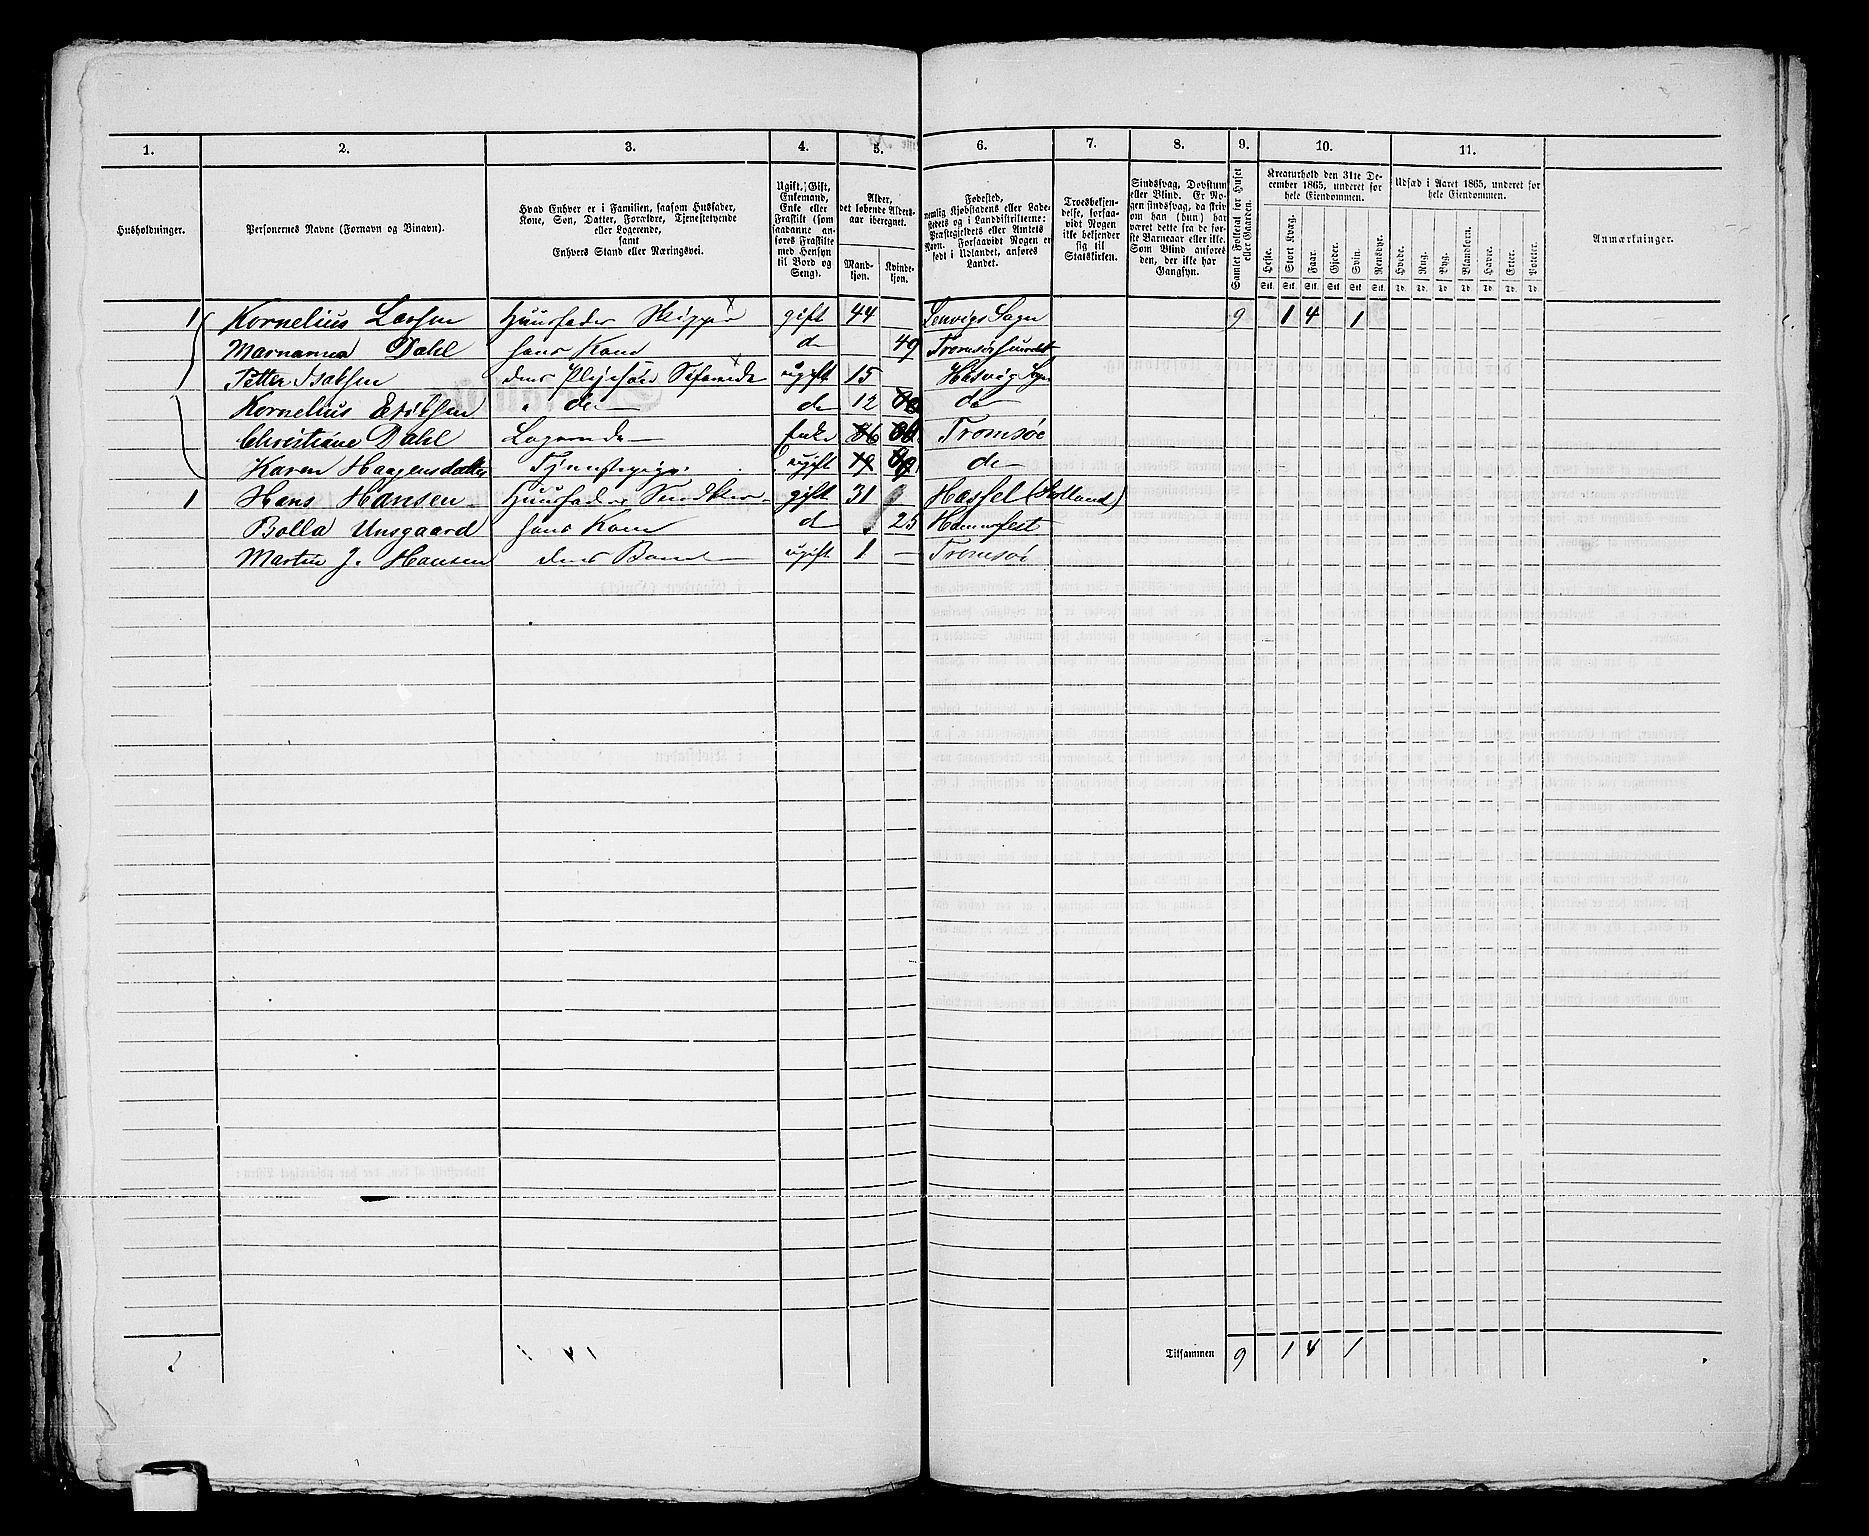 1. 2. 3. 4. 5. 6. 7. 8. 9. 10. 11.
Husholdninger.
Personernes Navne (Fornavn og Binavn).
Hvad Enhver er i Familien, saasom Husfader,
Kone, Søn, Datter, Forældre, Tjenestetyende
eller Logerende,
samt
Enhvers Stand eller Næringsvei.
Ugift, Gift,
Enkemand,
Enke eller
Fraskilt (som
saadanne an-
føres Fraskilte
med Hensyn
til Bord og
Seng).
Alder,
det løbende Alders-
aar iberegnet.
Mand-
kjøn.
Kvinde-
kjøn.
Fødested,
nemlig Kjøbstadens eller Lade-
stedets og i Landdistrikterne:
Præstegjeldets eller Amtets
Navn. Forsaavidt Nogen er
født i Udlandet, anføres
Landet.
Troesbekjen-
delse, forsaa-
vidt Nogen
ikke bekjender
sig til
Statskirken.
Sindssvag, Døvstum
eller Blind. Er No-
gen sindssvag, da skriv
om han (hun) har
været dette fra de før-
ste Barneaar eller ikke.
Som Blind anføres
den, der ikke har
Gangsyn.
Samlet Folketal for Huset
eller Gaarden.
Kreaturhold den 31te De-
cember 1865, underet for
hele Eiendommen.
Heste. Stort Kvæg. Faar. Gjeder. Svin. Rensdyr.
Stk. Stk. Stk. Stk. Stk. Stk.
Udsæd i Aaret 1865, underet for
hele Eiendommen.
Hvede. Rug. Byg. Blandkorn. Havre. Erter. Poteter.
Td. Td. Td. Td. Td. Td. Td.
Anmærkninger.
1 Kornelius Larsen Huusfader Skipper gift 44 Lenvigs Sogn 9 1 4 1
Marnanna Dahl hans Kone do 49 Tromsø
Petter Isaksen deres Pleiesøn ugift 15 Hasvig Sogn
Kornelius " do do 12 do
Christiane Dahl Logerende Enke 86 Tromsøe
Karen Haagensdatter Tjenestepige ugift 19 do
1 Hans Hansen Huusfader gift 31 (Holland)
Bolla Unsgaard hans Kone do 25 Hammerfest
Martin J. Hansen deres Barn ugift 1 — Tromsø
2 Tilsammen 9 1 4 1